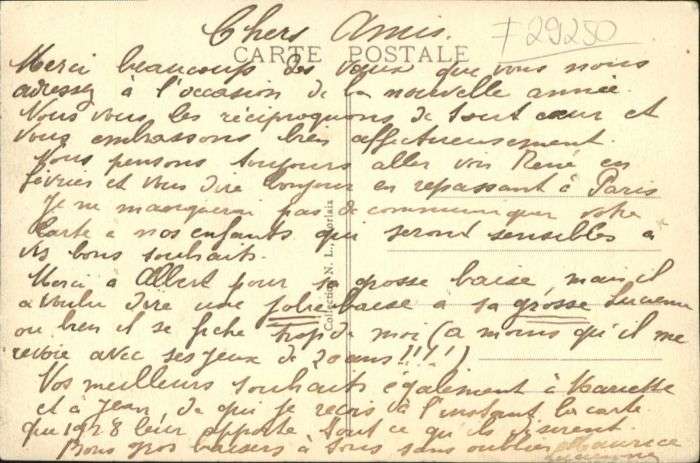 Chers Amis.
CARTE POSTALE
F 29250
Merci beaucoup des voeux que vous nous
adressez à l'occasion de la nouvelle année.
Nous vous les réciproquons de tout cœur et
vous embrassons bien affectueusement.
Nous pensons toujours aller voir René en
février et vous dire bonjour en repassant à Paris
Je ne manquerai pas de communiquer votre
carte à nos enfants qui seront sensibles à
vos bons souhaits.
Merci à Albert pour sa grosse baise, mais il
a voulu dire une jolie baise à sa grosse Lucienne
ou bien il se fiche trop de moi (à moins qu'il me
revoie avec ses yeux de 20 ans!!!!)
Vos meilleurs souhaits également à Mariette
et à Jean, de qui je reçois à l'instant la carte
que 1928 leur apporte tout ce qu'ils désirent.
Bons gros baisers à tous sans oublier Maurice
Lucienne
Collection N. L., Morlaix